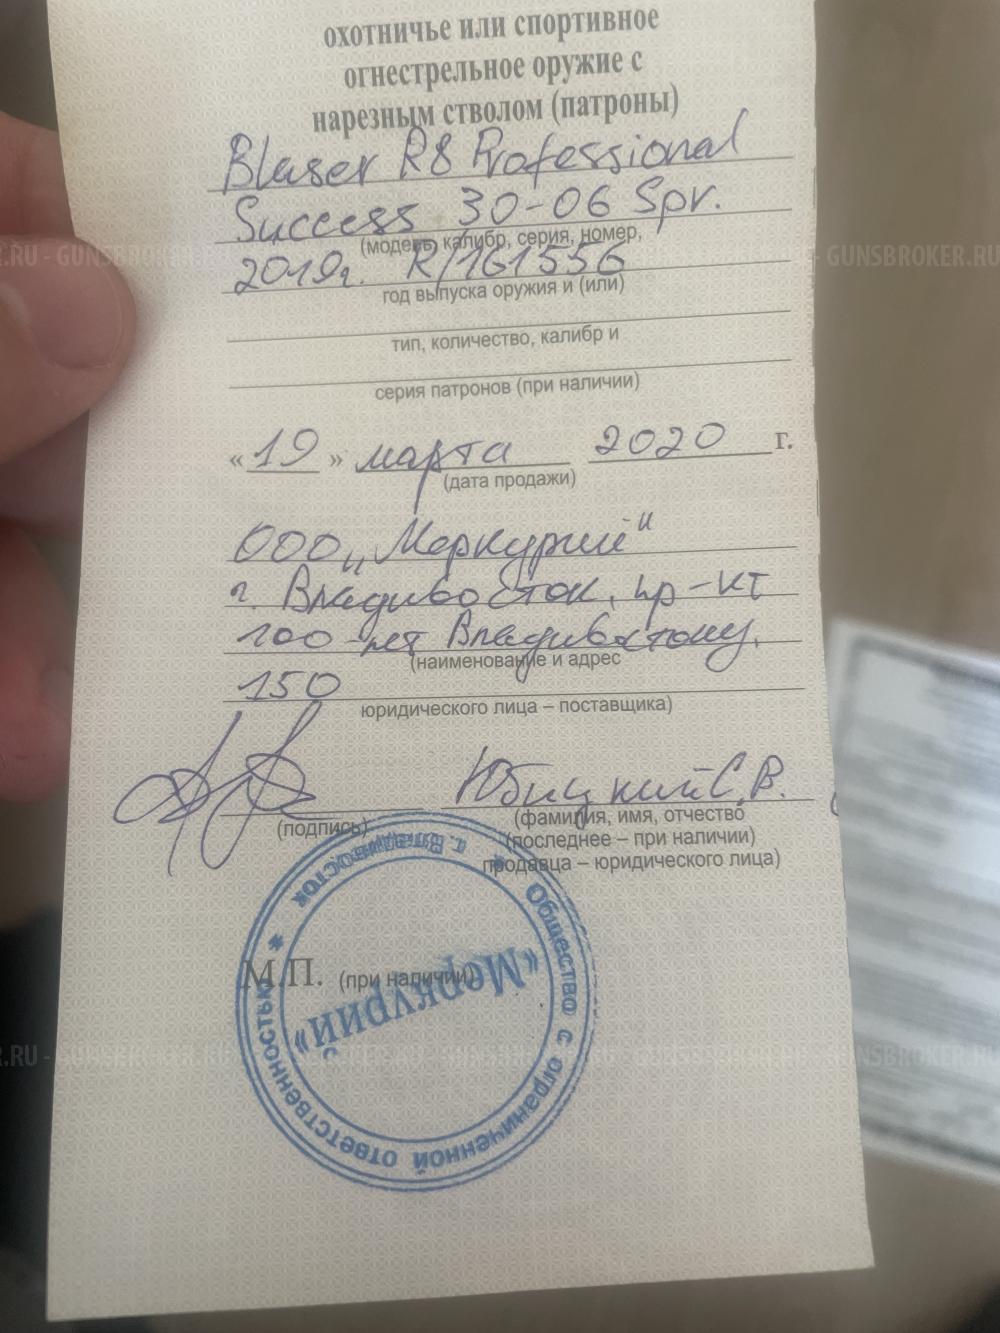 охотничье или спортивное
огнестрельное оружие с
нарезным стволом (патроны)
Blaser R8 Professional
Success 30-06 Spr.
(модель, калибр, серия, номер,
2019г. R/161556
год выпуска оружия и (или)
тип, количество, калибр и
серия патронов (при наличии)
«19» марта 2020 г.
(дата продажи)
ООО „Меркурий"
г. Владивосток, пр-кт
100-лет Владивостоку,
(наименование и адрес
150
юридического лица – поставщика)
Юбицкий С.В.
(подпись) (фамилия, имя, отчество
(последнее – при наличии)
продавца – юридического лица)
М.П. (при наличии)
Общество с ограниченной ответственностью * г. Владивосток *
«Меркурий»
.RU - GUNSBROKER.RU - GUNSBROKER.RU
.RU - GUNSBROKER.RU - GUNSBROKER.RU